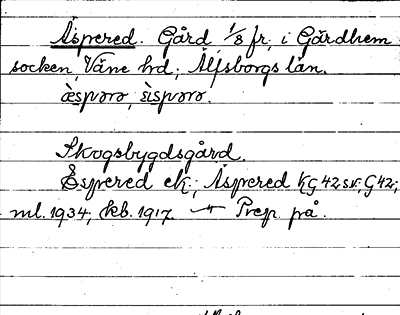 Äspered. Gård 1/8 fr, i Gärdhem
socken, Väne hd; Älfsborgs län.
æspərə, ɛ̀ispərə.
Skogsbygdsgård.
Espered ek; Äspered KG 42 sv; G 42;
ml. 1934; kb. 1917. Prep. på.